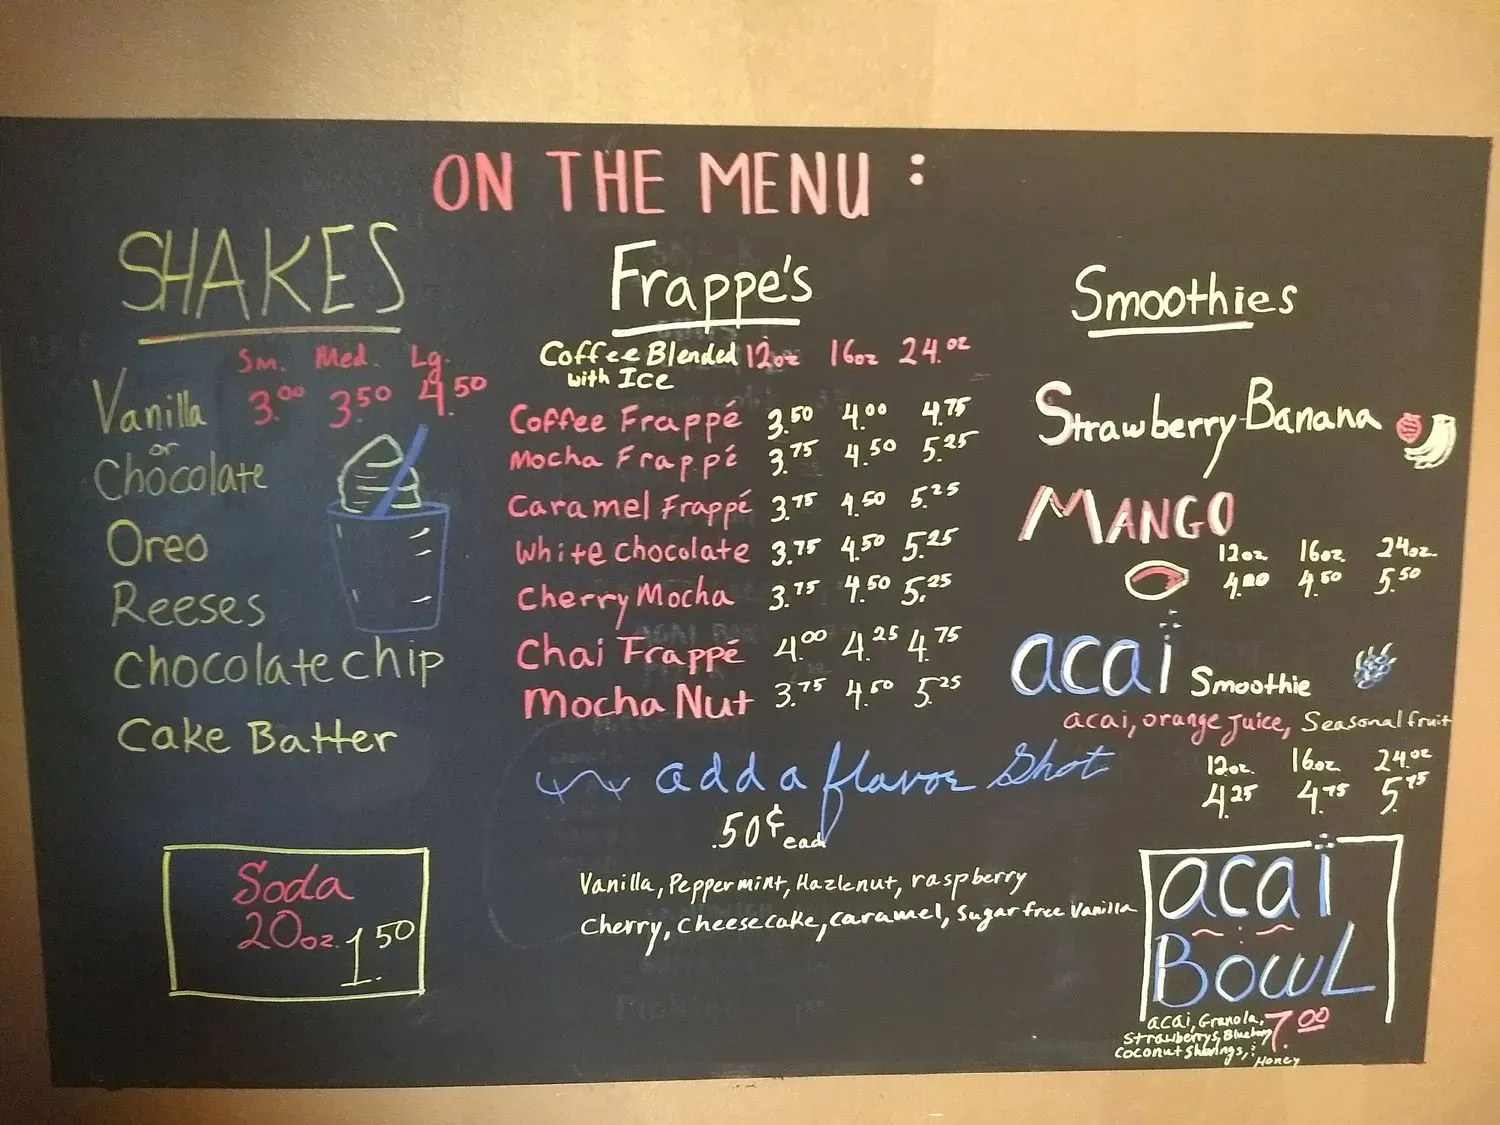 ON THE MENU :
SHAKES
Sm. Med. Lg.
Vanilla 3.00 3.50 4.50
or
Chocolate
Oreo
Reeses
Chocolate chip
Cake Batter
Soda
20oz. 1.50
Frappe's
Coffee Blended 12oz 16oz 24.oz
with Ice
Coffee Frappé 3.50 4.00 4.75
Mocha Frappé 3.75 4.50 5.25
Caramel Frappé 3.75 4.50 5.25
White chocolate 3.75 4.50 5.25
Cherry Mocha 3.75 4.50 5.25
Chai Frappé 4.00 4.25 4.75
Mocha Nut 3.75 4.50 5.25
add a flavor Shot
.50¢ ea
Vanilla, Peppermint, Hazlenut, raspberry
Cherry, Cheesecake, caramel, Sugar free Vanilla
Smoothies
Strawberry Banana
MANGO
12oz 16oz. 24oz.
4.00 4.50 5.50
acai Smoothie
acai, orange juice, Seasonal fruit
12oz. 16oz. 24.oz
4.25 4.75 5.75
acai
BOWL
acai, Granola, 7.00
Strawberrys, Blueberry
coconut shavings,
Honey